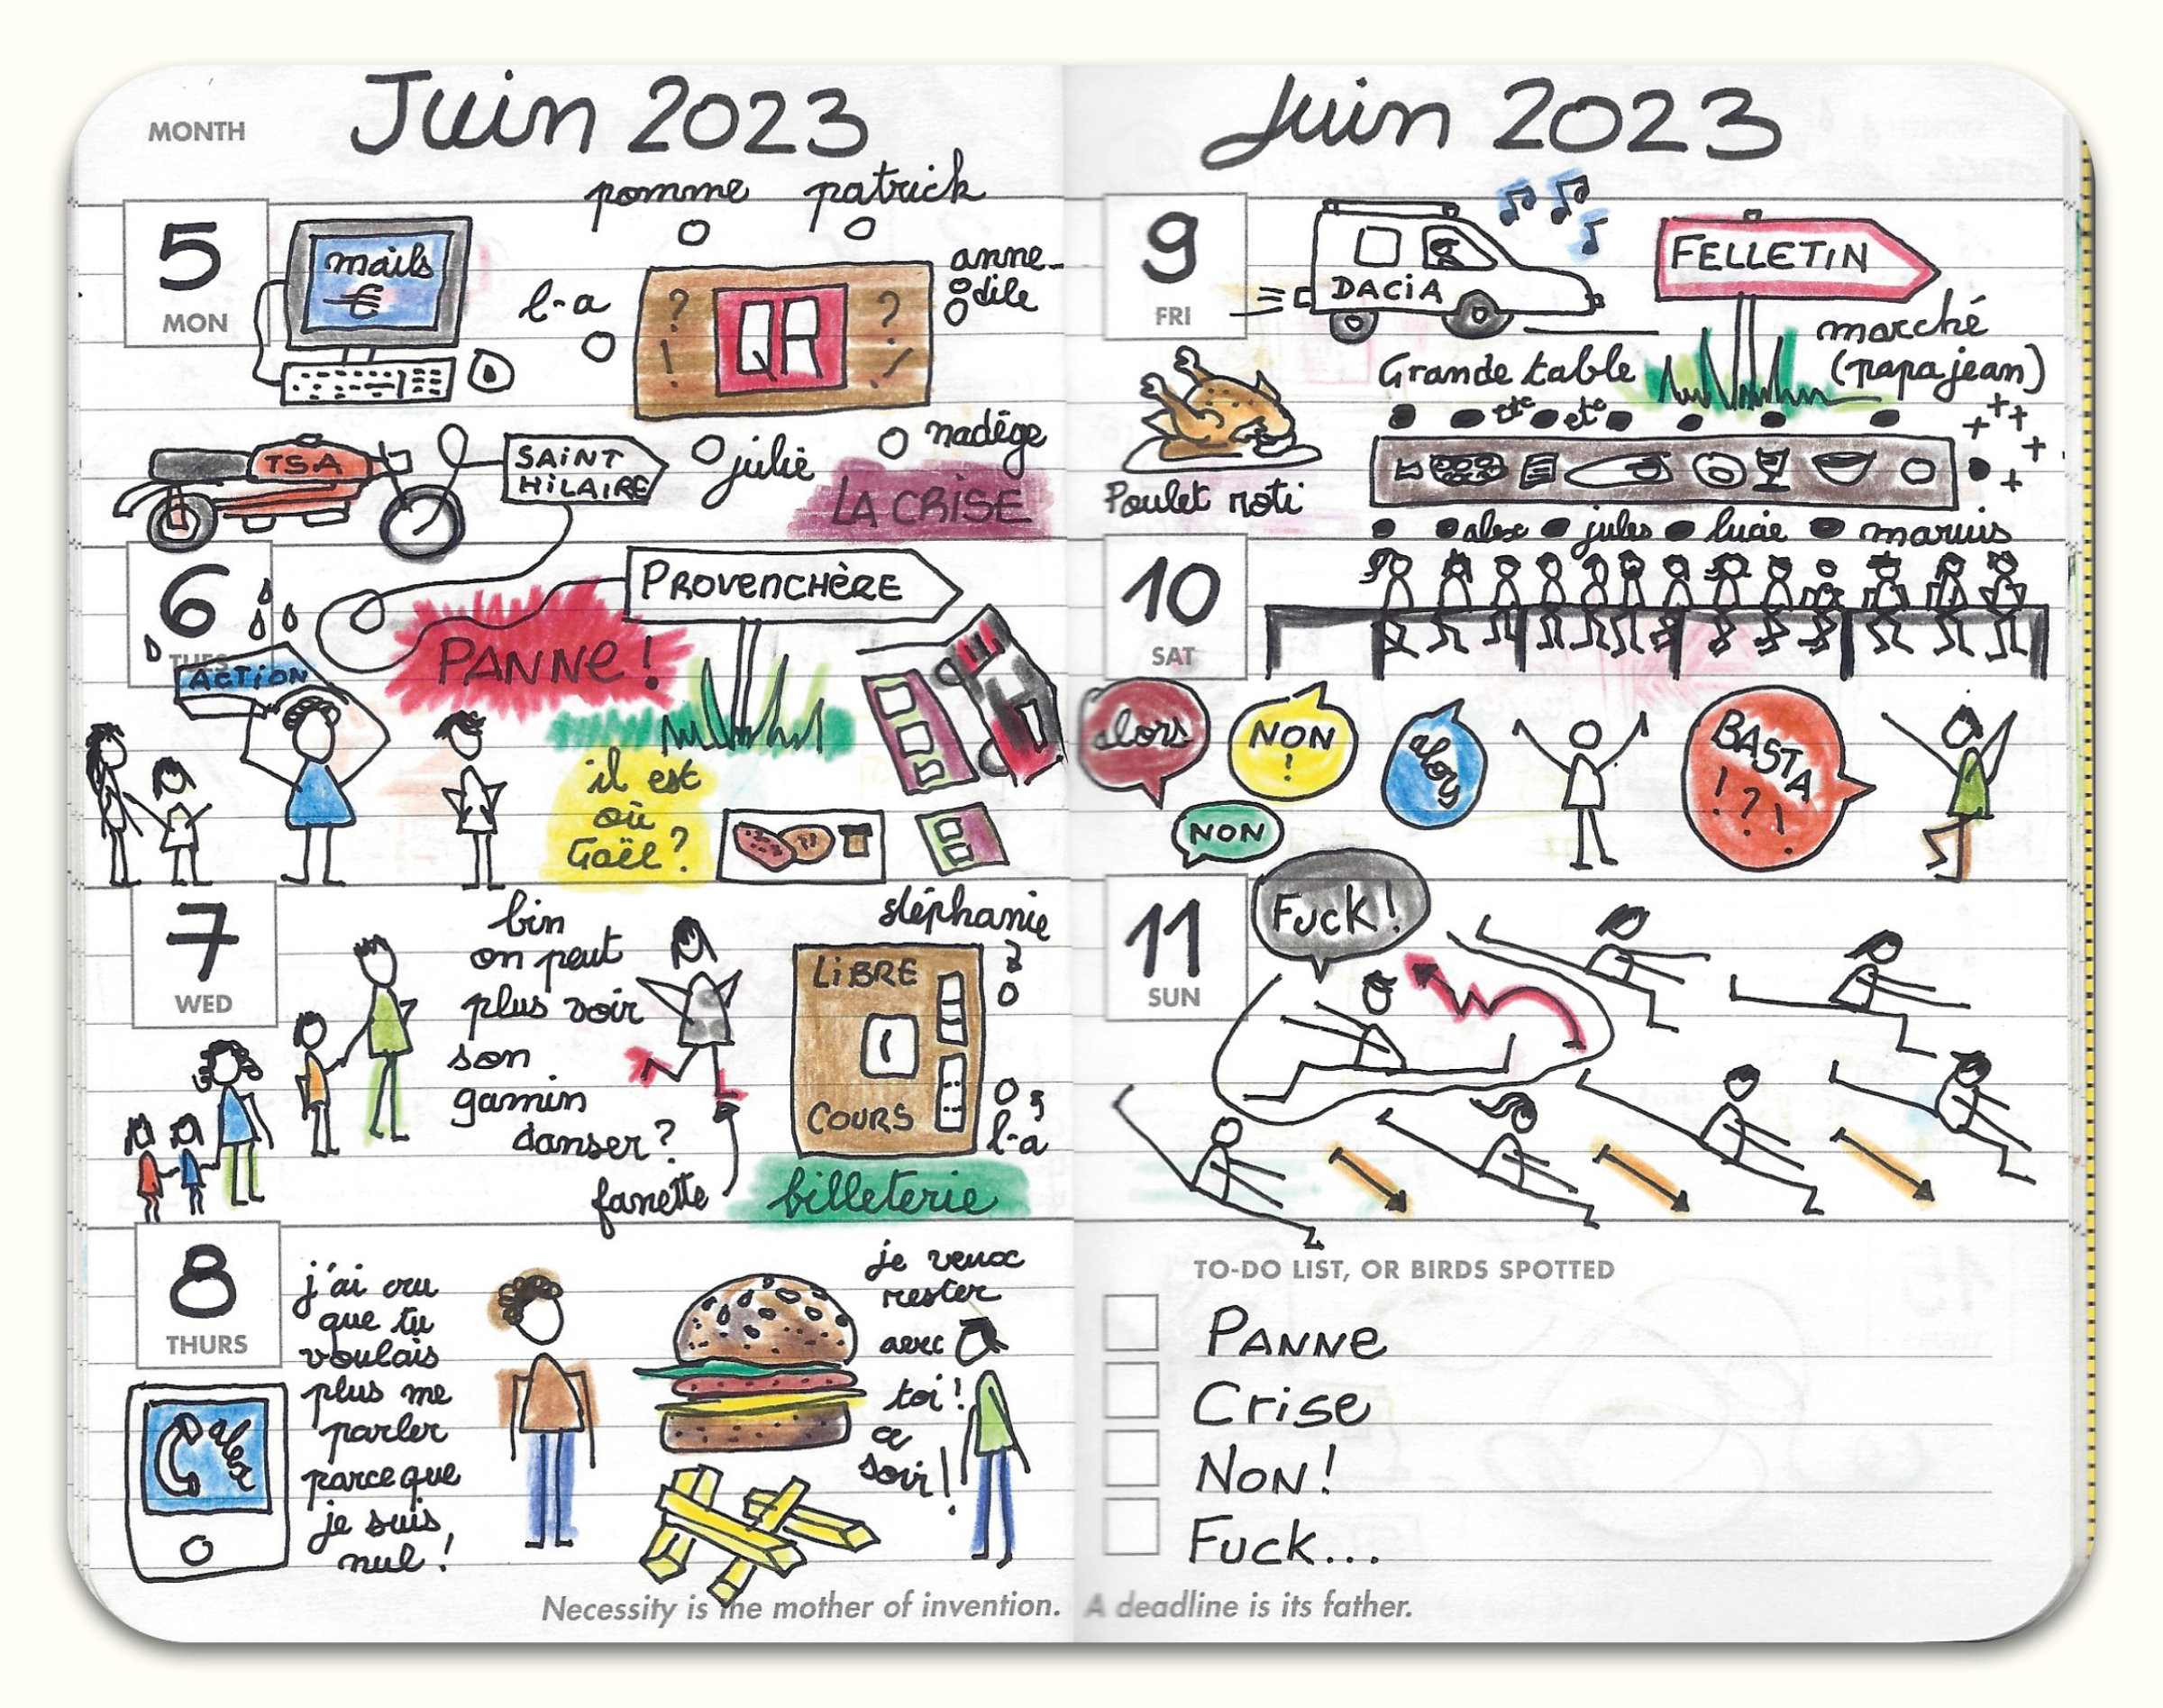 MONTH
Juin 2023
5
MON
mails
€
pomme
patrick
l-a
anne-
odile
? QR ?
! !
TSA
SAINT
HILAIRE
julie
nadège
LA CRISE
6
TUES
ACTION
PANNE!
PROVENCHÈRE
il est
où
Gaël?
7
WED
bin
on peut
plus voir
son
gamin
danser?
fanette
stéphanie
LIBRE
COURS
l-a
billeterie
8
THURS
alex
j'ai cru
que tu
voulais
plus me
parler
parce que
je suis
nul!
je veux
rester
avec
toi!
ce
soir!
Necessity is the mother of invention.
Juin 2023
9
FRI
DACIA
FELLETIN
marché
(papajean)
Grande table
Poulet roti
etc etc
alex jules lucie marius
10
SAT
alors
NON
!
NON
BASTA
!?!
11
SUN
Fuck!
TO-DO LIST, OR BIRDS SPOTTED
PANNE
Crise
NON!
Fuck...
A deadline is its father.